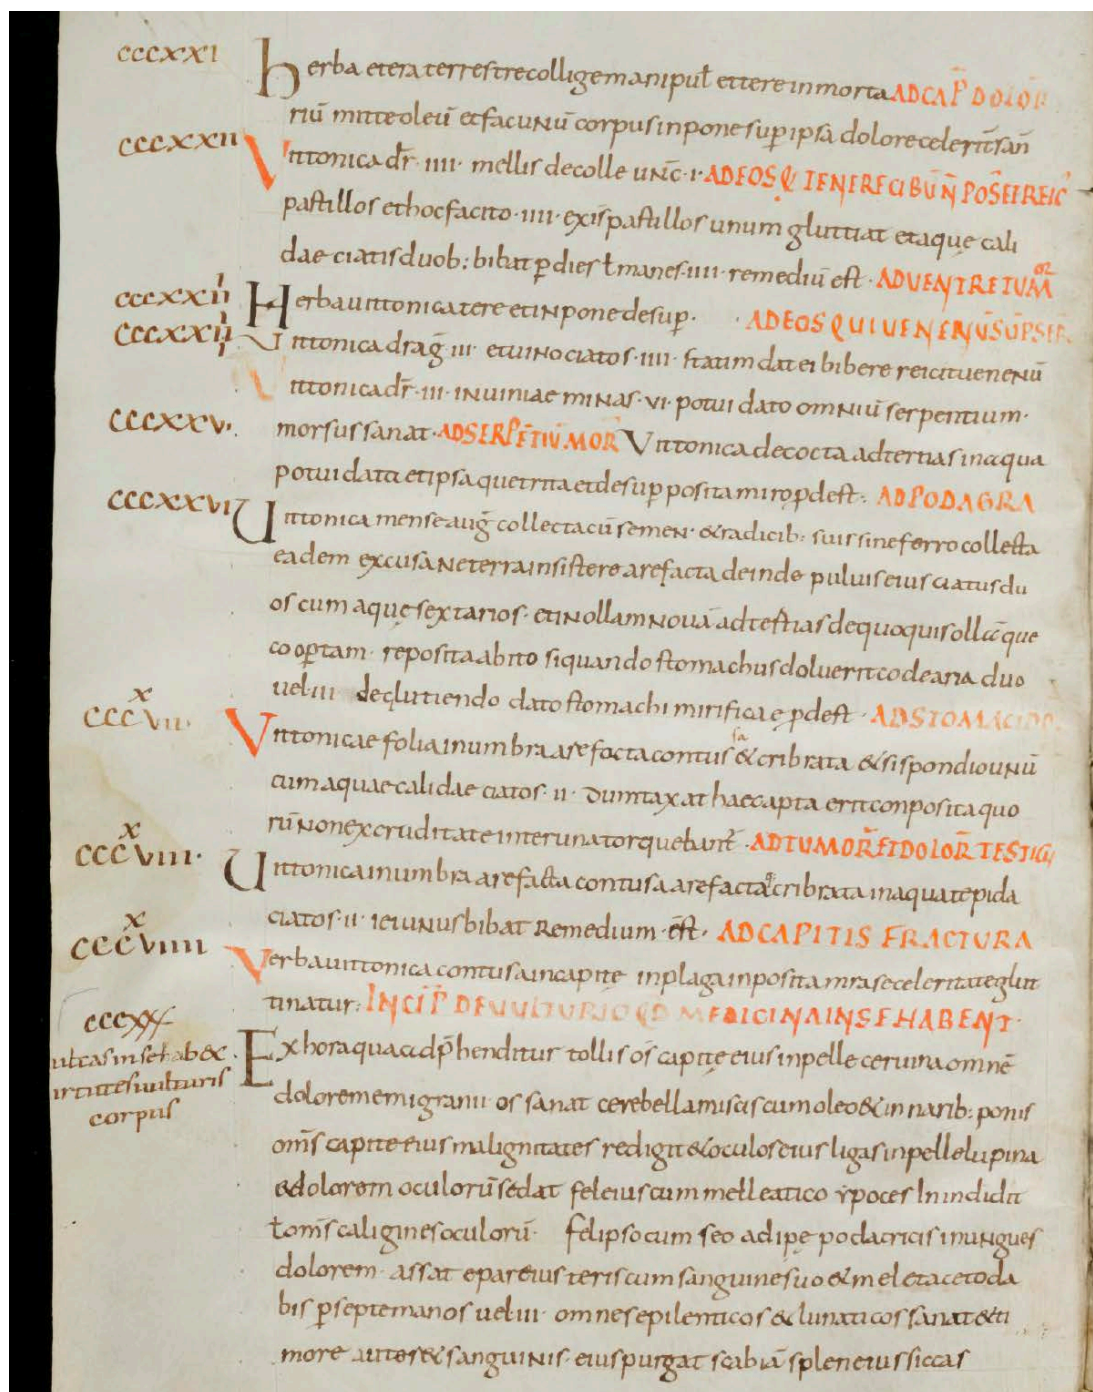 cccxxı
herba etera terrestre collige manipul̄ et tere in morta ADCAP̄ DOLOR
riū mitte oleū et facunū corpus inpone sup ipsa dolore celerit̄ san̄
cccxxıı
Vıttonica dr̄ · IIII · mellis decolle unc̄ · I · ADEOSQ IENERECIBUN̄ POS̄ EIREIC̄
pastillos et hoc facito · IIII · exis̄ pastillos unum gluttiat et aquę cali
dae ciatis duob: bibat p dies ł manes · IIII · remediū est · ADVENTRE TUM̄
or
cccxxııı
Herba uittonica tere et inpone desup · ADEOS QUI UENENŪ SUPSER
cccxxıııı
Vittonica drag̅ · III · et uino ciatos · IIII · statim dat ei bibere reicit uenenū
Vittonica dr̄ · III · in uiniae minas · VI · potui dato omniū serpentium ·
cccxxv ·
morsus sanat · AD SERPĒTIŪ MOR̄ Vittonica decocta ad tertias in aqua
potui data et ipsa quetrita et desup posita miro pdest : AD PODAGRA
cccxxvı
Vittonica mense aug̅ collecta cū semen · & radicib: suis sine ferro collecta
eadem excusa ne terra insistere arefacta deinde puluis eius ciatus du
os cum aquę sextarios · et in ollam nouā ad testias dequoquis ollā que
coop̱tam · reposita abito si quando stomachus doluerit coclearia duo
uel · III · declutiendo dato stomachi mirificaę pdest · ADSTOMACI DO
x
cccvıı ·
Vittonicae folia in umbra arefacta contus & cribrata & si spondio unū
sa
cum aquae calidae ciatos · II · dumtaxat haec apta erit conposita quo
rū non ex cruditate interuna torquebant̄ · ADTUMOR̄ ET DOLOR̄ TESTIGU
x
cccvııı ·
Vittonica in umbra arefacta contusa arefacta cribrata in aqua tepida
ciatos · II · ieiunus bibat remedium · ēst · AD CAPITIS FRACTURA
x
cccvıııı
Verba uittonica contusa in capitę in plaga inposita mira se celeritate glut
tinatur : INCIP̄ DE UULTURIO QD MEDICINA IN SE HABENT ·
cccxxx
utcas in se hab&
irtutes uulturis
corpus
Ex hora qua adp̄henditur tollis os̄ capitę eius in pelle ceruina omnē
dolorem emigranii os sanat cerebella miscis cum oleo & in narib: ponis
omīs capite eius malignitates redigit & oculos eius ligas in pelle lupina
& dolorem oculorū sedat fel eius cum mell eatico ypoces In indidit
ł omīs caligines oculorū · fel ipso cum seo adipę podacricis inungues
dolorem · assat epar eius teris cum sanguine suo & mel et aceto da
bis p septem anos uel · III · omnes epilenticos & lunaticos sanat & ti
more autes & sanguinis · eius purgat scabiā splen eius siccas